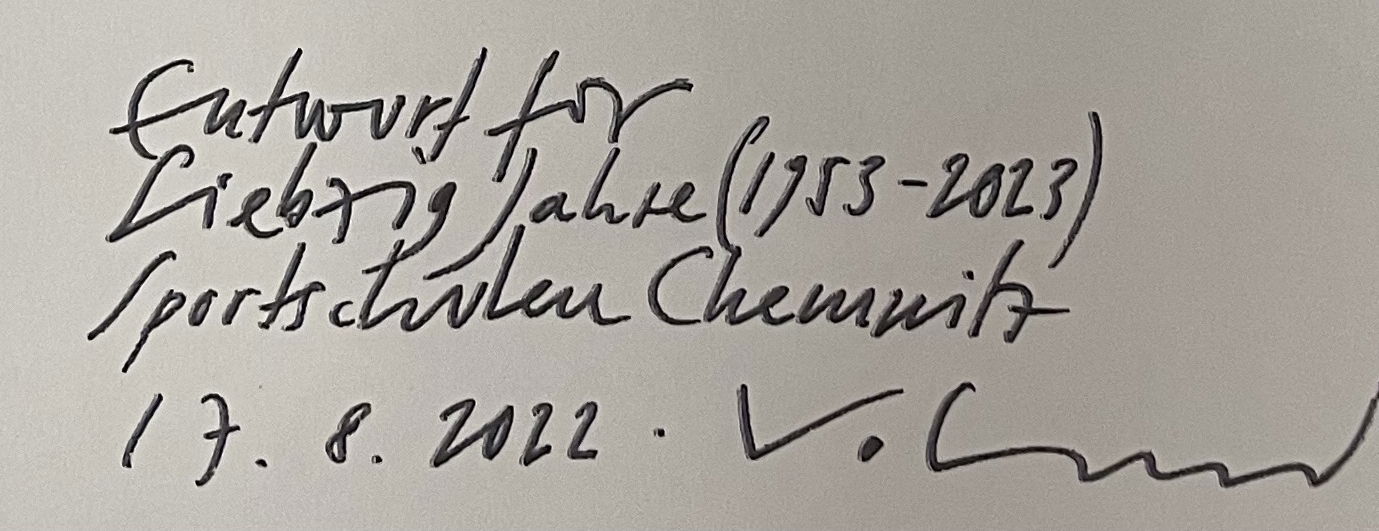 Entwurf für
Siebzig Jahre (1953-2023)
Sportschulen Chemnitz
17. 8. 2022. V.